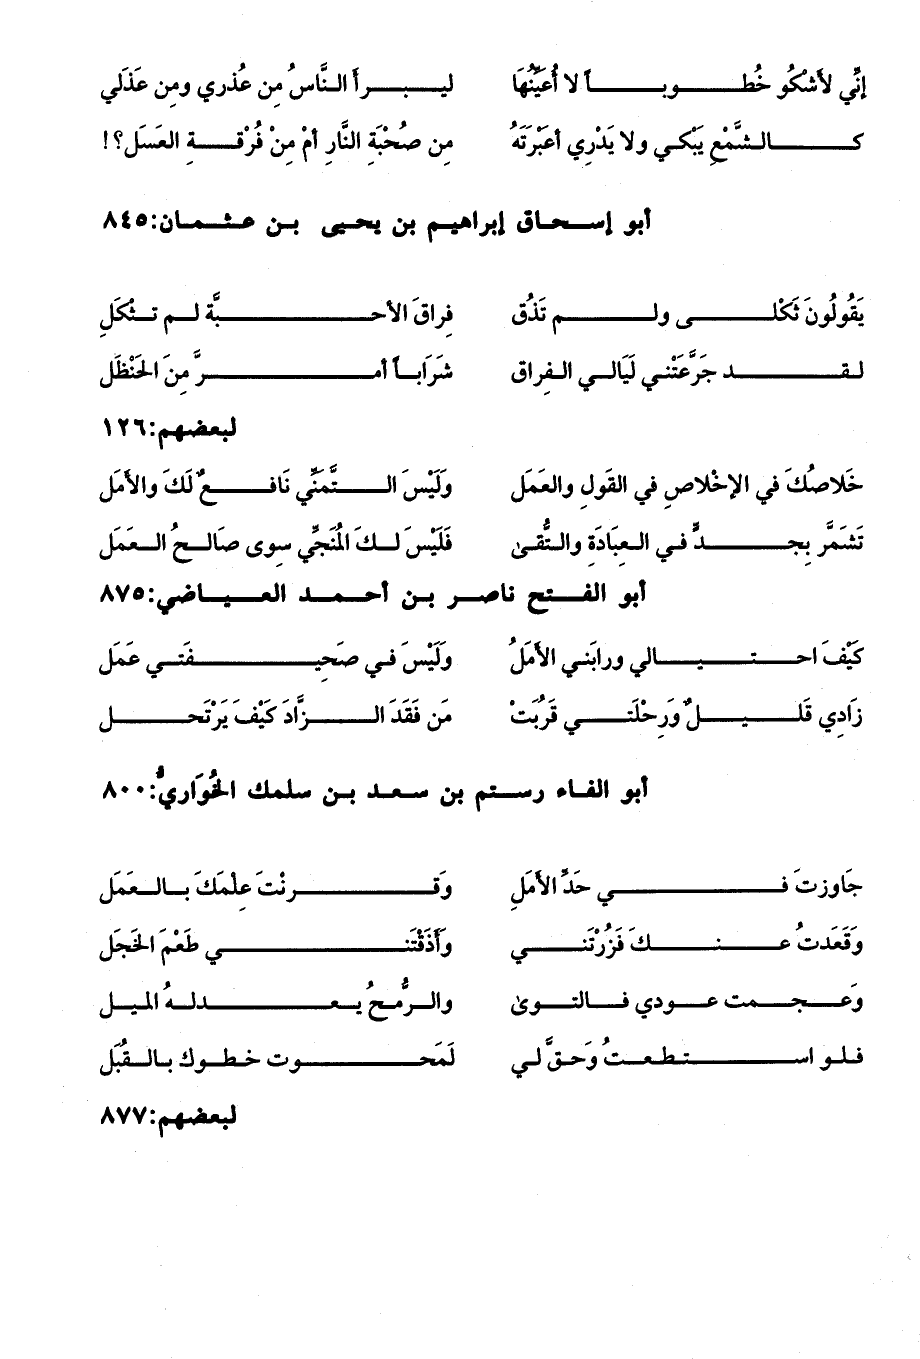 إنِّي لأشْكُو خُطوباً لا أُعَيِّنُهَا ليبرأ النَّاسُ مِن عُذري ومِن عَذَلي
كالشَّمْعِ يَبْكي ولا يَدْرِي أعَبْرَتَهُ مِن صُحْبَةِ النَّارِ أمْ مِنْ فُرْقةِ العَسَل؟!
أبو إسحاق إبراهيم بن يحيى بن عثمان:٨٤٥
يَقُولُونَ ثَكْلى ولم تَذُق فِراقَ الأحبَّة لم تثْكَلِ
لقد جَرَّعَتْني لَيَالي الفِراق شَرَاباً أمرَّ مِنَ الحَنْظَل
لبعضهم:١٢٦
خَلاصُكَ في الإخْلاصِ في القَولِ والعَمَل وَلَيْسَ التَّمَنِّي نَافعٌ لَكَ والأمَل
تَشَمَّر بِجدٍّ في العِبَادَةِ والتُّقىٰ فَلَيْسَ لكَ المُنَجِّي سِوى صَالحُ العمَل
أبو الفتح ناصر بن أحمد العياضي:٨٧٥
كَيْفَ احتيالي ورابَني الأمَلُ وَلَيْسَ في صَحِيفَتي عَمَل
زَادِي قَليلٌ وَرِحْلَتي قَرُبَتْ مَن فَقَدَ الزَّادَ كَيْفَ يَرْتَحل
أبو الفاء رستم بن سعد بن سلمك الخُوَاريُّ:٨٠٠
جَاوزتَ في حَدِّ الأمَلِ وَقرنْتَ عِلْمَكَ بالعَمَل
وَقَعَدتُ عنكَ فَزُرْتَني وَأَذَقْتَني طَعْمَ الخَجَل
وَعجمت عودي فالتوىٰ والرُّمحُ يعدلهُ الميل
فلو استطعتُ وَحقَّ لي لَمَحوت خطوك بالقُبَل
لبعضهم:٨٧٧